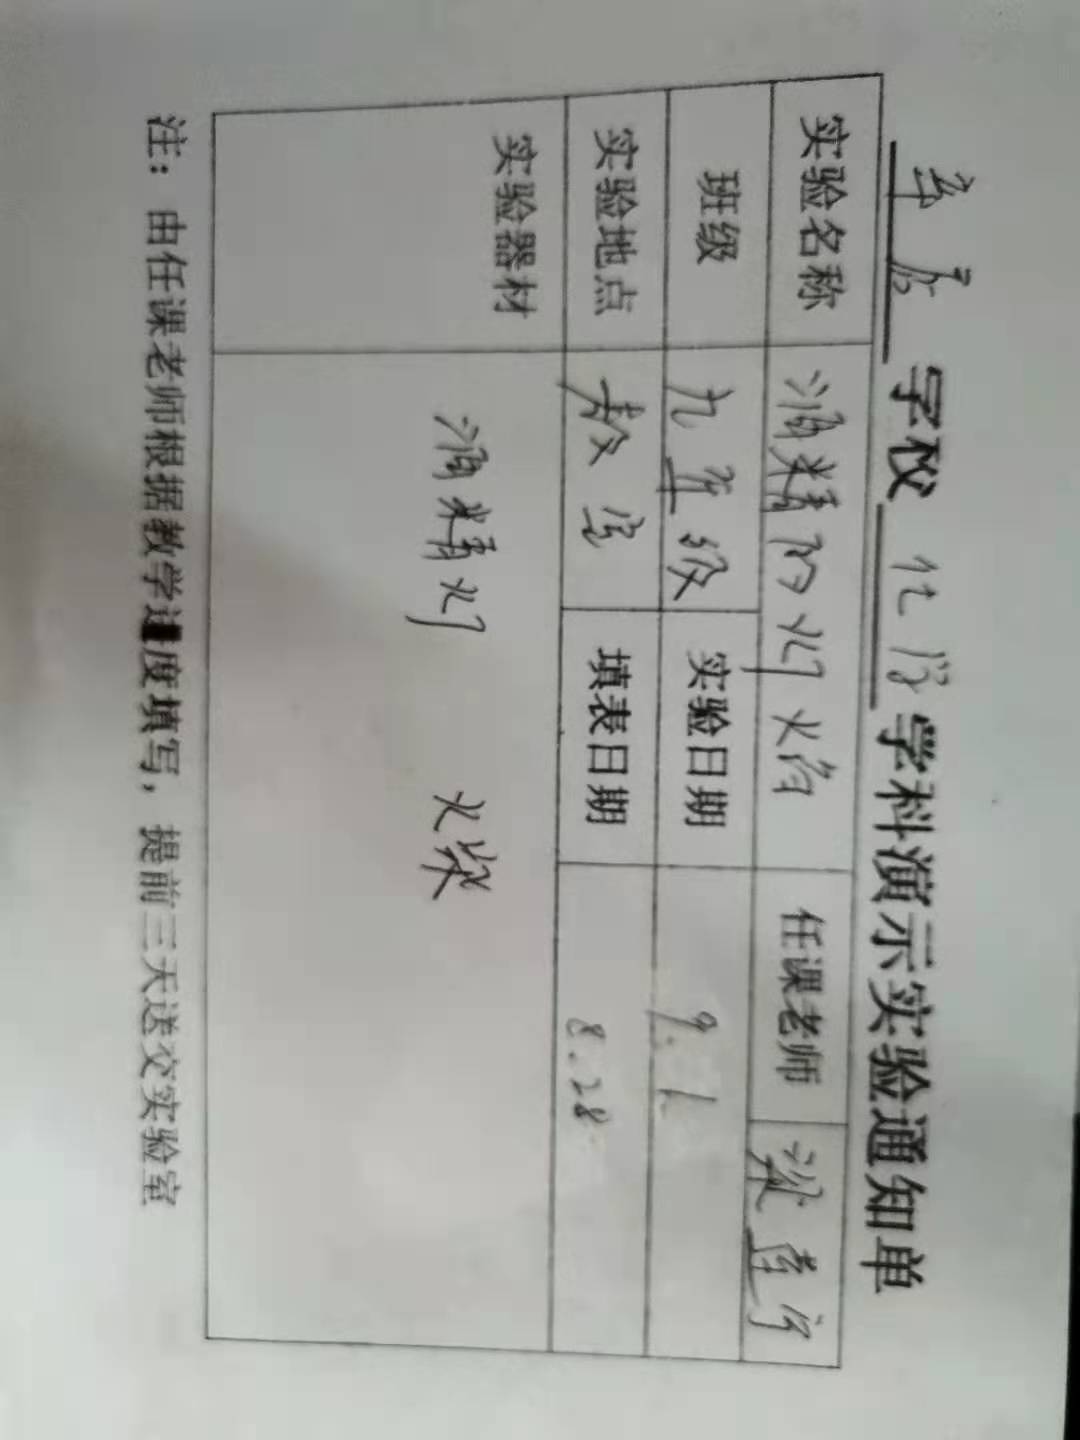 学校 化学 学科演示实验通知单
实验名称 酒精灯火焰 任课老师
班级 九年级 实验日期 9.1
实验地点 教室 填表日期 8.28
实验器材 酒精灯 火柴
注：由任课老师根据教学进度填写，提前三天送交实验室